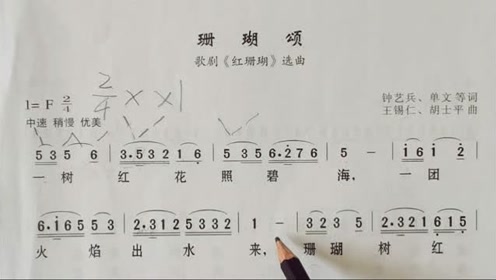 珊 瑚 颂
歌剧《红珊瑚》选曲
1= F 2/4 2/4 X X |
中速 稍慢 优美
钟艺兵、单文 等词
王锡仁、胡士平 曲
5 3 5 6 | 3·5 3 2 1 6 | 5 3 5 6·2 7 6 | 5 - | i 6 i 2 |
一 树 红 花 照 碧 海, 一 团
6·i 6 5 5 3 | 2·3 2 1 5 3 3 2 | 1 - | 3 2 3 5 | 2·3 2 1 6 1 5 |
火 焰 出 水 来, 珊 瑚 树 红